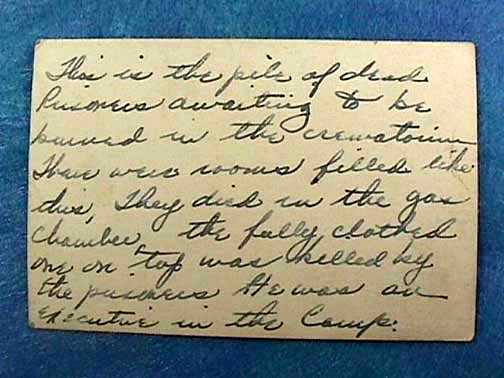 This is the pile of dead
Prisoners awaiting to be
burned in the crematorium
There were rooms filled like
this, They died in the gas
chamber, the fully clothed
one on top was killed by
the prisoners He was an
executive in the Camp.